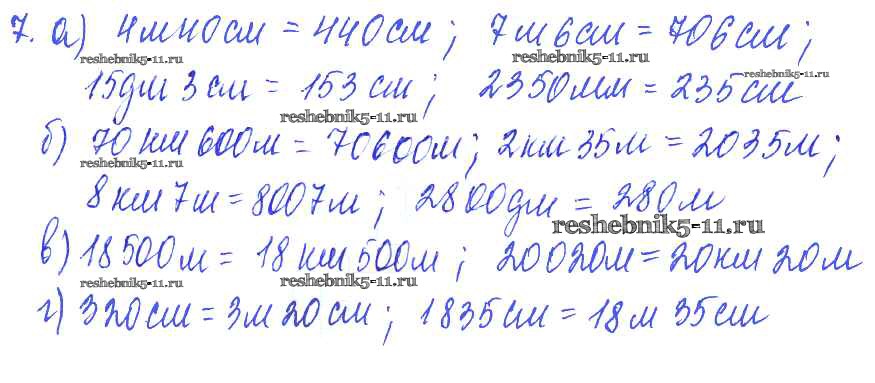 7. а) 4м40см = 440см; 7м6см = 706см;
reshebnik5-11.ru reshebnik5-11.ru
15дм 3см = 153см; 2350мм = 235см
reshebnik5-11.ru reshebnik5-11.ru
б) 70км 600м = 70600м; 2км 35м = 2035м;
reshebnik5-11.ru
8км7м = 8007м; 2800дм = 280м
reshebnik5-11.ru
в) 18500м = 18км 500м; 20020м = 20км 20м
reshebnik5-11.ru reshebnik5-11.ru
г) 320см = 3м 20см; 1835см = 18м 35см